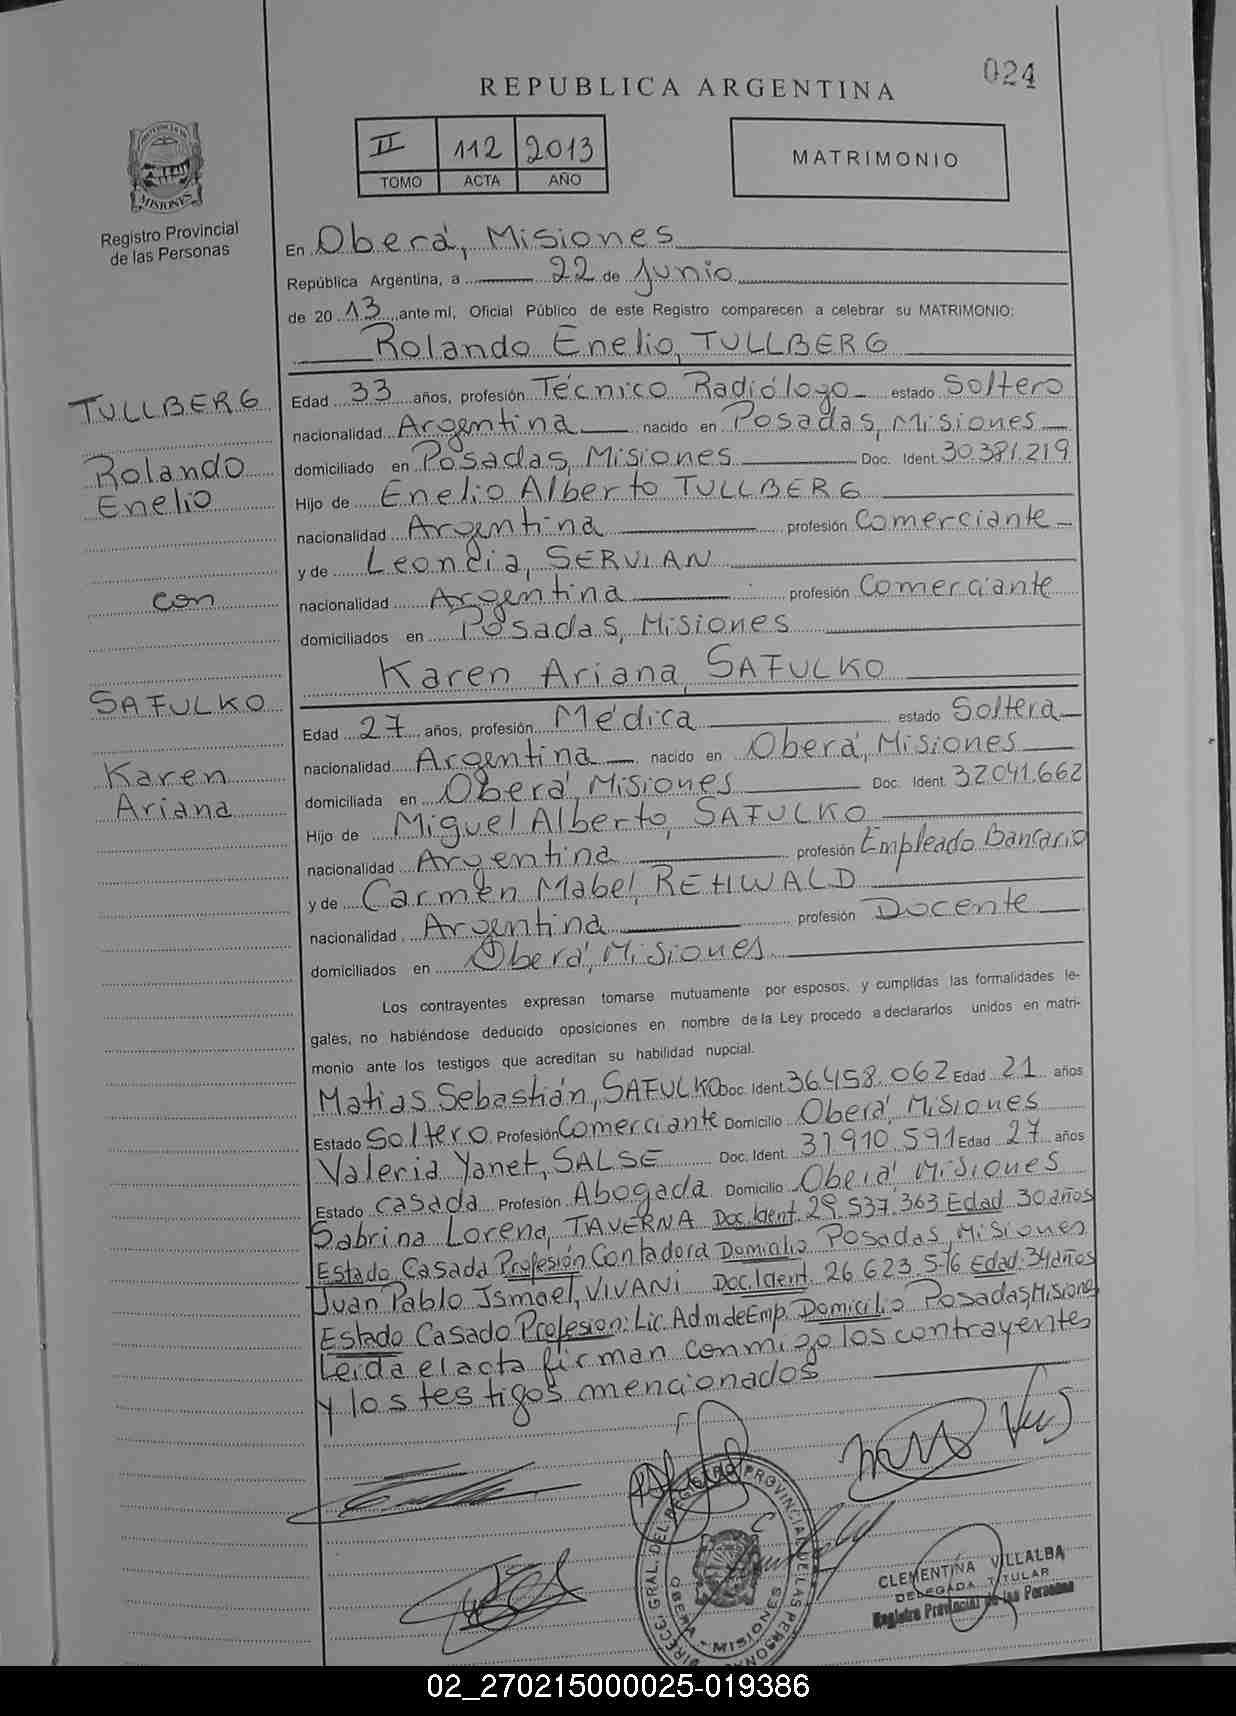 024
REPUBLICA ARGENTINA
II 112 2013
TOMO ACTA AÑO
MATRIMONIO
PROVINCIA DE
MISIONES
Registro Provincial
de las Personas
En Oberá, Misiones
República Argentina, a 22 de Junio
de 2013 ante mí, Oficial Público de este Registro comparecen a celebrar su MATRIMONIO:
Rolando Enelio, TULLBERG
TULLBERG
Rolando
Enelio
con
SAFULKO
Karen
Ariana
Edad 33 años, profesión Técnico Radiólogo estado Soltero
nacionalidad Argentina nacido en Posadas, Misiones
domiciliado en Posadas, Misiones Doc. Ident. 30.381.219
Hijo de Enelio Alberto TULLBERG
nacionalidad Argentina profesión Comerciante
y de Leoncia, SERVIAN
nacionalidad Argentina profesión Comerciante
domiciliados en Posadas, Misiones
Karen Ariana, SAFULKO
Edad 27 años, profesión Médica estado Soltera
nacionalidad Argentina nacido en Oberá, Misiones
domiciliada en Oberá, Misiones Doc. Ident. 32041.662
Hijo de Miguel Alberto, SAFULKO
nacionalidad Argentina profesión Empleado Bancario
y de Carmen Mabel, REHWALD
nacionalidad Argentina profesión Docente
domiciliados en Oberá, Misiones
Los contrayentes expresan tomarse mutuamente por esposos, y cumplidas las formalidades le-
gales, no habiéndose deducido oposiciones en nombre de la Ley procedo a declararlos unidos en matri-
monio ante los testigos que acreditan su habilidad nupcial.
Matias Sebastián, SAFULKO Doc. Ident. 36.458.062 Edad 21 años
Estado Soltero Profesión Comerciante Domicilio Oberá, Misiones
Valeria Yanet, SALSE Doc. Ident. 31.910.591 Edad 27 años
Estado Casada Profesión Abogada Domicilio Oberá, Misiones
Sabrina Lorena, TAVERNA Doc. Ident. 29.537.363 Edad 30 años
Estado Casada Profesión Contadora Domicilio Posadas, Misiones
Juan Pablo Ismael, VIVANI Doc. Ident. 26 623.576 Edad: 34 años
Estado Casado Profesion: Lic. Adm de Emp. Domicilio Posadas, Misiones
Leída el acta firman conmigo los contrayentes
y los testigos mencionados
DIRECC. GRAL. DEL REGISTRO PROVINCIAL DE LAS PERSONAS
OBERA - MISIONES
CLEMENTINA VILLALBA
DELEGADA TITULAR
Registro Provincial de las Personas
02_270215000025-019386